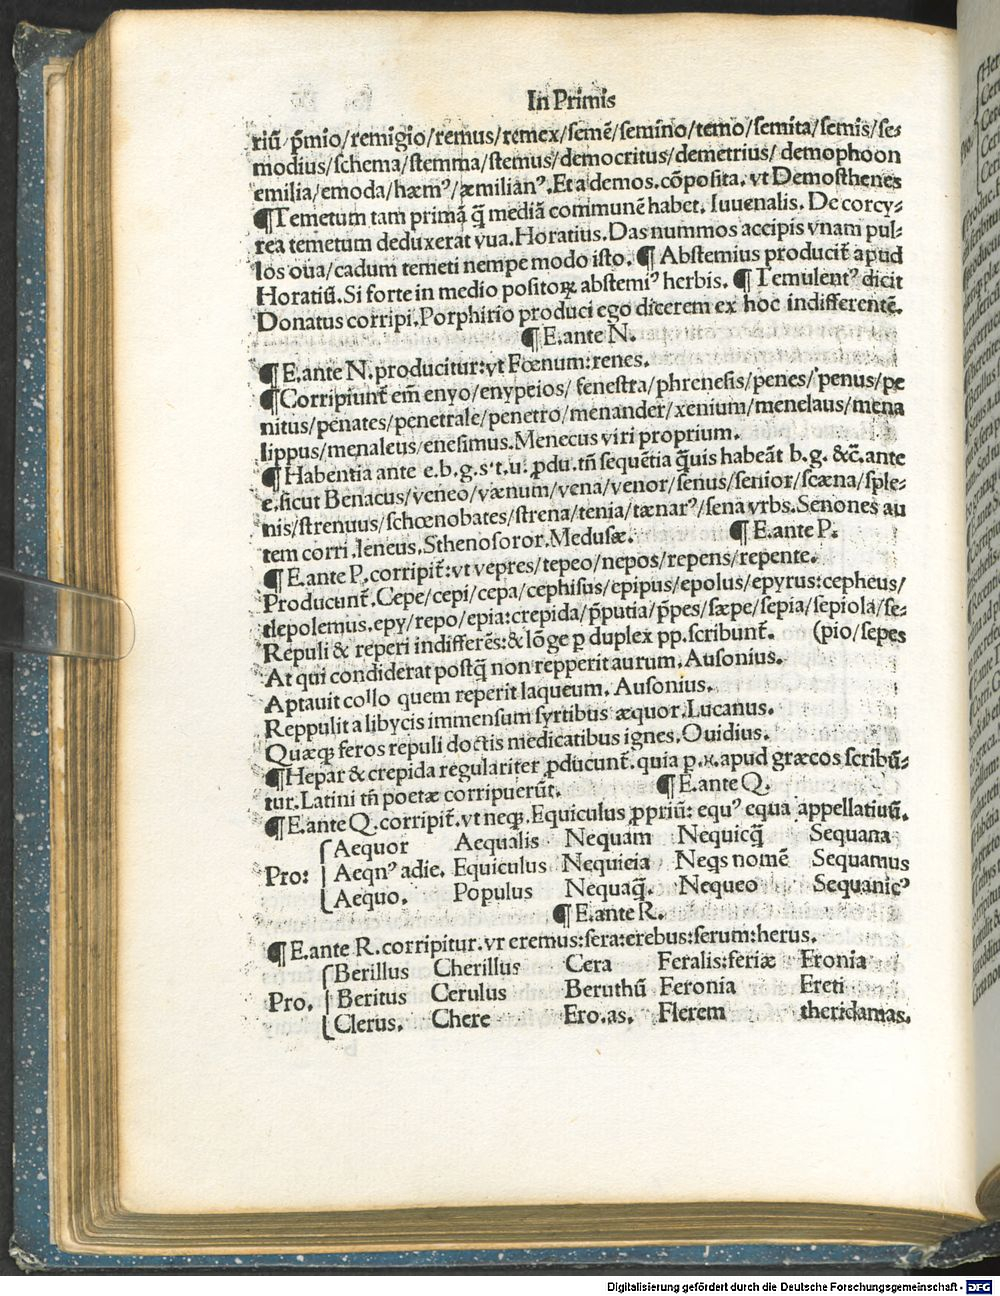 In Primis
riū p̄mio/remigio/remus/remex/semē/semino/temo/semita/semis/se⸗
modius/schema/stemma/stemus/democritus/demetrius/ demophoon
emilia/emoda/hæmꝰ/æmilianꝰ.Et a demos.cōposita. vt Demosthenes
¶Temetum tam primā q̄ mediā communē habet. Iuuenalis. De corcy⸗
rea temetum deduxerat vua.Horatius.Das nummos accipis vnam pul⸗
los oua/cadum temeti nempe modo isto. ¶ Abstemius producit̄ apud
Horatiū.Si forte in medio positoꝝ abstemiꝰ herbis. ¶ Temulentꝰ dicit
Donatus corripi.Porphirio produci ego dicerem ex hoc indifferentē.
¶E.ante N.
¶E.ante N.producitur:vt Fœnum:renes.
¶Corripiunt̄ em̄ enyo/enypeios/ fenestra/phrenesis/penes/penus/pe
nitus/penates/penetrale/penetro/menander/xenium/menelaus/mena
lippus/menaleus/enesimus.Menecus viri proprium.
¶Habentia ante e.b.g.s.t.u. ꝓdu.tn̄ sequētia q̄uis habeāt b.g. &c̄.ante
e.sicut Benacus/veneo/vænum/vena/venor/senus/senior/scæna/sple⸗
nis/strenuus/schœnobates/strena/tenia/tænarꝰ/sena vrbs.Senones au
tem corri.leneus.Sthenosoror.Medusæ. ¶E.ante P.
¶E.ante P.corripit̄:vt vepres/tepeo/nepos/repens/repente.
Producunt̄.Cepe/cepi/cepa/cephisus/epipus/epolus/epyrus:cepheus/
tlepolemus.epy/repo/epia:crepida/p̄putia/p̄pes/sæpe/sepia/sepiola/se⸗
Repuli & reperi indifferēs:& lōge p duplex pp.scribunt̄. (pio/sepes
At qui condiderat postq̄ non repperit aurum.Ausonius.
Aptauit collo quem reperit laqueum. Ausonius.
Reppulit a libycis immensum syrtibus æquor.Lucanus.
Quæqꝫ feros repuli doctis medicatibus ignes.Ouidius.
¶Hepar & crepida regulariter ꝓducunt̄: quia p.η.apud græcos scribū⸗
tur.Latini tn̄ poetæ corripuerūt. ¶E.ante Q.
¶E.ante Q.corripit̄.vt neqꝫ.Equiculus ꝓpriū: equꝰ equa appellatiuū.
Aequor Aequalis Nequam Nequicq̄ Sequana
Pro: Aeqnꝰ adie. Equiculus Nequicia Neqs nomē Sequamus
Aequo. Populus Nequaq̄. Nequeo Sequanicꝰ
¶E.ante R.
¶E.ante R.corripitur.vr eremus:fera:erebus:serum:herus.
Berillus Cherillus Cera Feralis:feriæ Eronia
Pro. Beritus Cerulus Beruthū Feronia Ereti
Clerus. Chere Ero.as. Flerem theridamas.
Digitalisierung gefördert durch die Deutsche Forschungsgemeinschaft - DFG